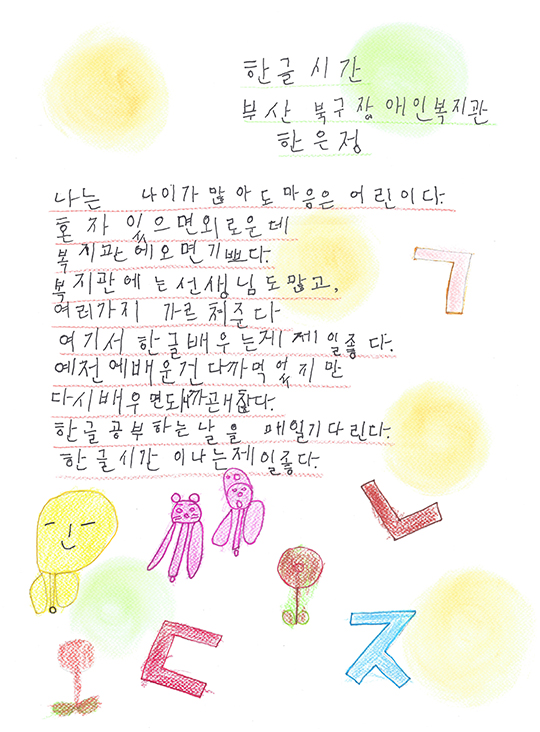 한글시간
부산 북구장애인복지관
한은정
나는 나이가 많아도 마음은 어린이다.
혼자 있으면외로운데
복지관에오면기쁘다.
복지관에는선생님도많고,
여러가지 가르쳐준다
여기서 한글배우는게제일좋다.
예전에배운건다까먹었지만
다시배우면되니까괜찮다.
한글공부하는날을 매일기다린다.
한글시간 이나는제일좋다.
ㄱ
ㄴ
ㄷ
ㅈ